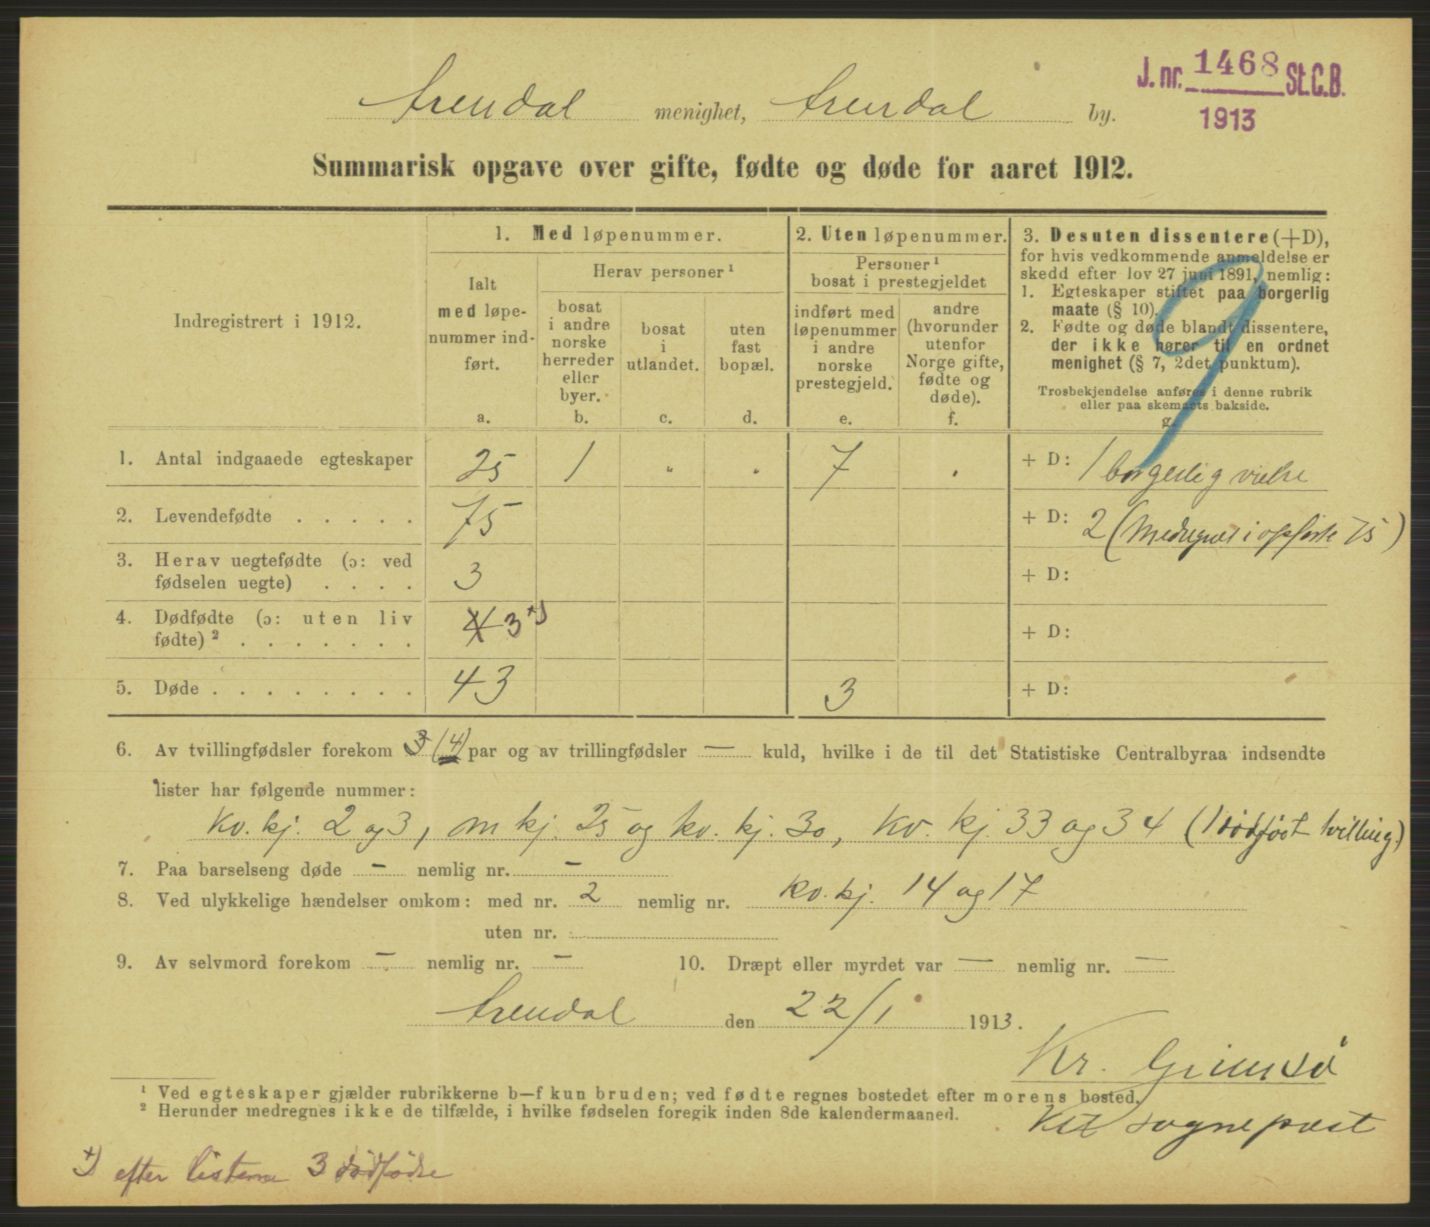 J. nr. 1468 St.C.B.
1913
Arendal menighet, Arendal by.
Summarisk opgave over gifte, fødte og døde for aaret 1912.
Indregistrert i 1912.
1. Med løpenummer.
Ialt
med løpe-
nummer ind-
ført.
a.
Herav personer ¹
bosat
i andre
norske
herreder
eller
byer.
b.
bosat
i
utlandet.
c.
uten
fast
bopæl.
d.
2. Uten løpenummer.
Personer ¹
bosat i prestegjeldet
indført med
løpenummer
i andre
norske
prestegjeld.
e.
andre
(hvorunder
utenfor
Norge gifte,
fødte og
døde).
f.
3. Desuten dissentere (+D),
for hvis vedkommende anmeldelse er
skedd efter lov 27 juni 1891, nemlig:
1. Egteskaper stiftet paa borgerlig
maate (§ 10).
2. Fødte og døde blandt dissentere,
der ikke hører til en ordnet
menighet (§ 7, 2det punktum).
Trosbekjendelse anføres i denne rubrik
eller paa skemaets bakside.
g.
9
1. Antal indgaaede egteskaper 25 1 " " 7 " + D: 1 borgerlig vielse
2. Levendefødte . . . . . 75 + D: 2 (medregnet i opførte 75)
3. Herav uegtefødte (ɔ: ved
fødselen uegte) . . . . 3 + D:
4. Dødfødte (ɔ: uten liv
fødte) ² . . . . . . . 4 3 +) + D:
5. Døde . . . . . . . . 43 3 + D:
6. Av tvillingfødsler forekom 3 (4) par og av trillingfødsler — kuld, hvilke i de til det Statistiske Centralbyraa indsendte
lister har følgende nummer:
Kv. kj. 2 og 3, m kj. 25 og kv. kj. 30, Kv. kj. 33 og 34 (1 dødfødt tvilling.)
7. Paa barselseng døde — nemlig nr. —
8. Ved ulykkelige hændelser omkom: med nr. 2 nemlig nr. Kv. kj. 14 og 17
uten nr.
9. Av selvmord forekom — nemlig nr. — 10. Dræpt eller myrdet var — nemlig nr. —
Arendal den 22/1 1913.
Kr. Grimsø
sogneprest
¹ Ved egteskaper gjælder rubrikkerne b—f kun bruden; ved fødte regnes bostedet efter morens bosted.
² Herunder medregnes ikke de tilfælde, i hvilke fødselen foregik inden 8de kalendermaaned.
+) efter listerne 3 dødfødte